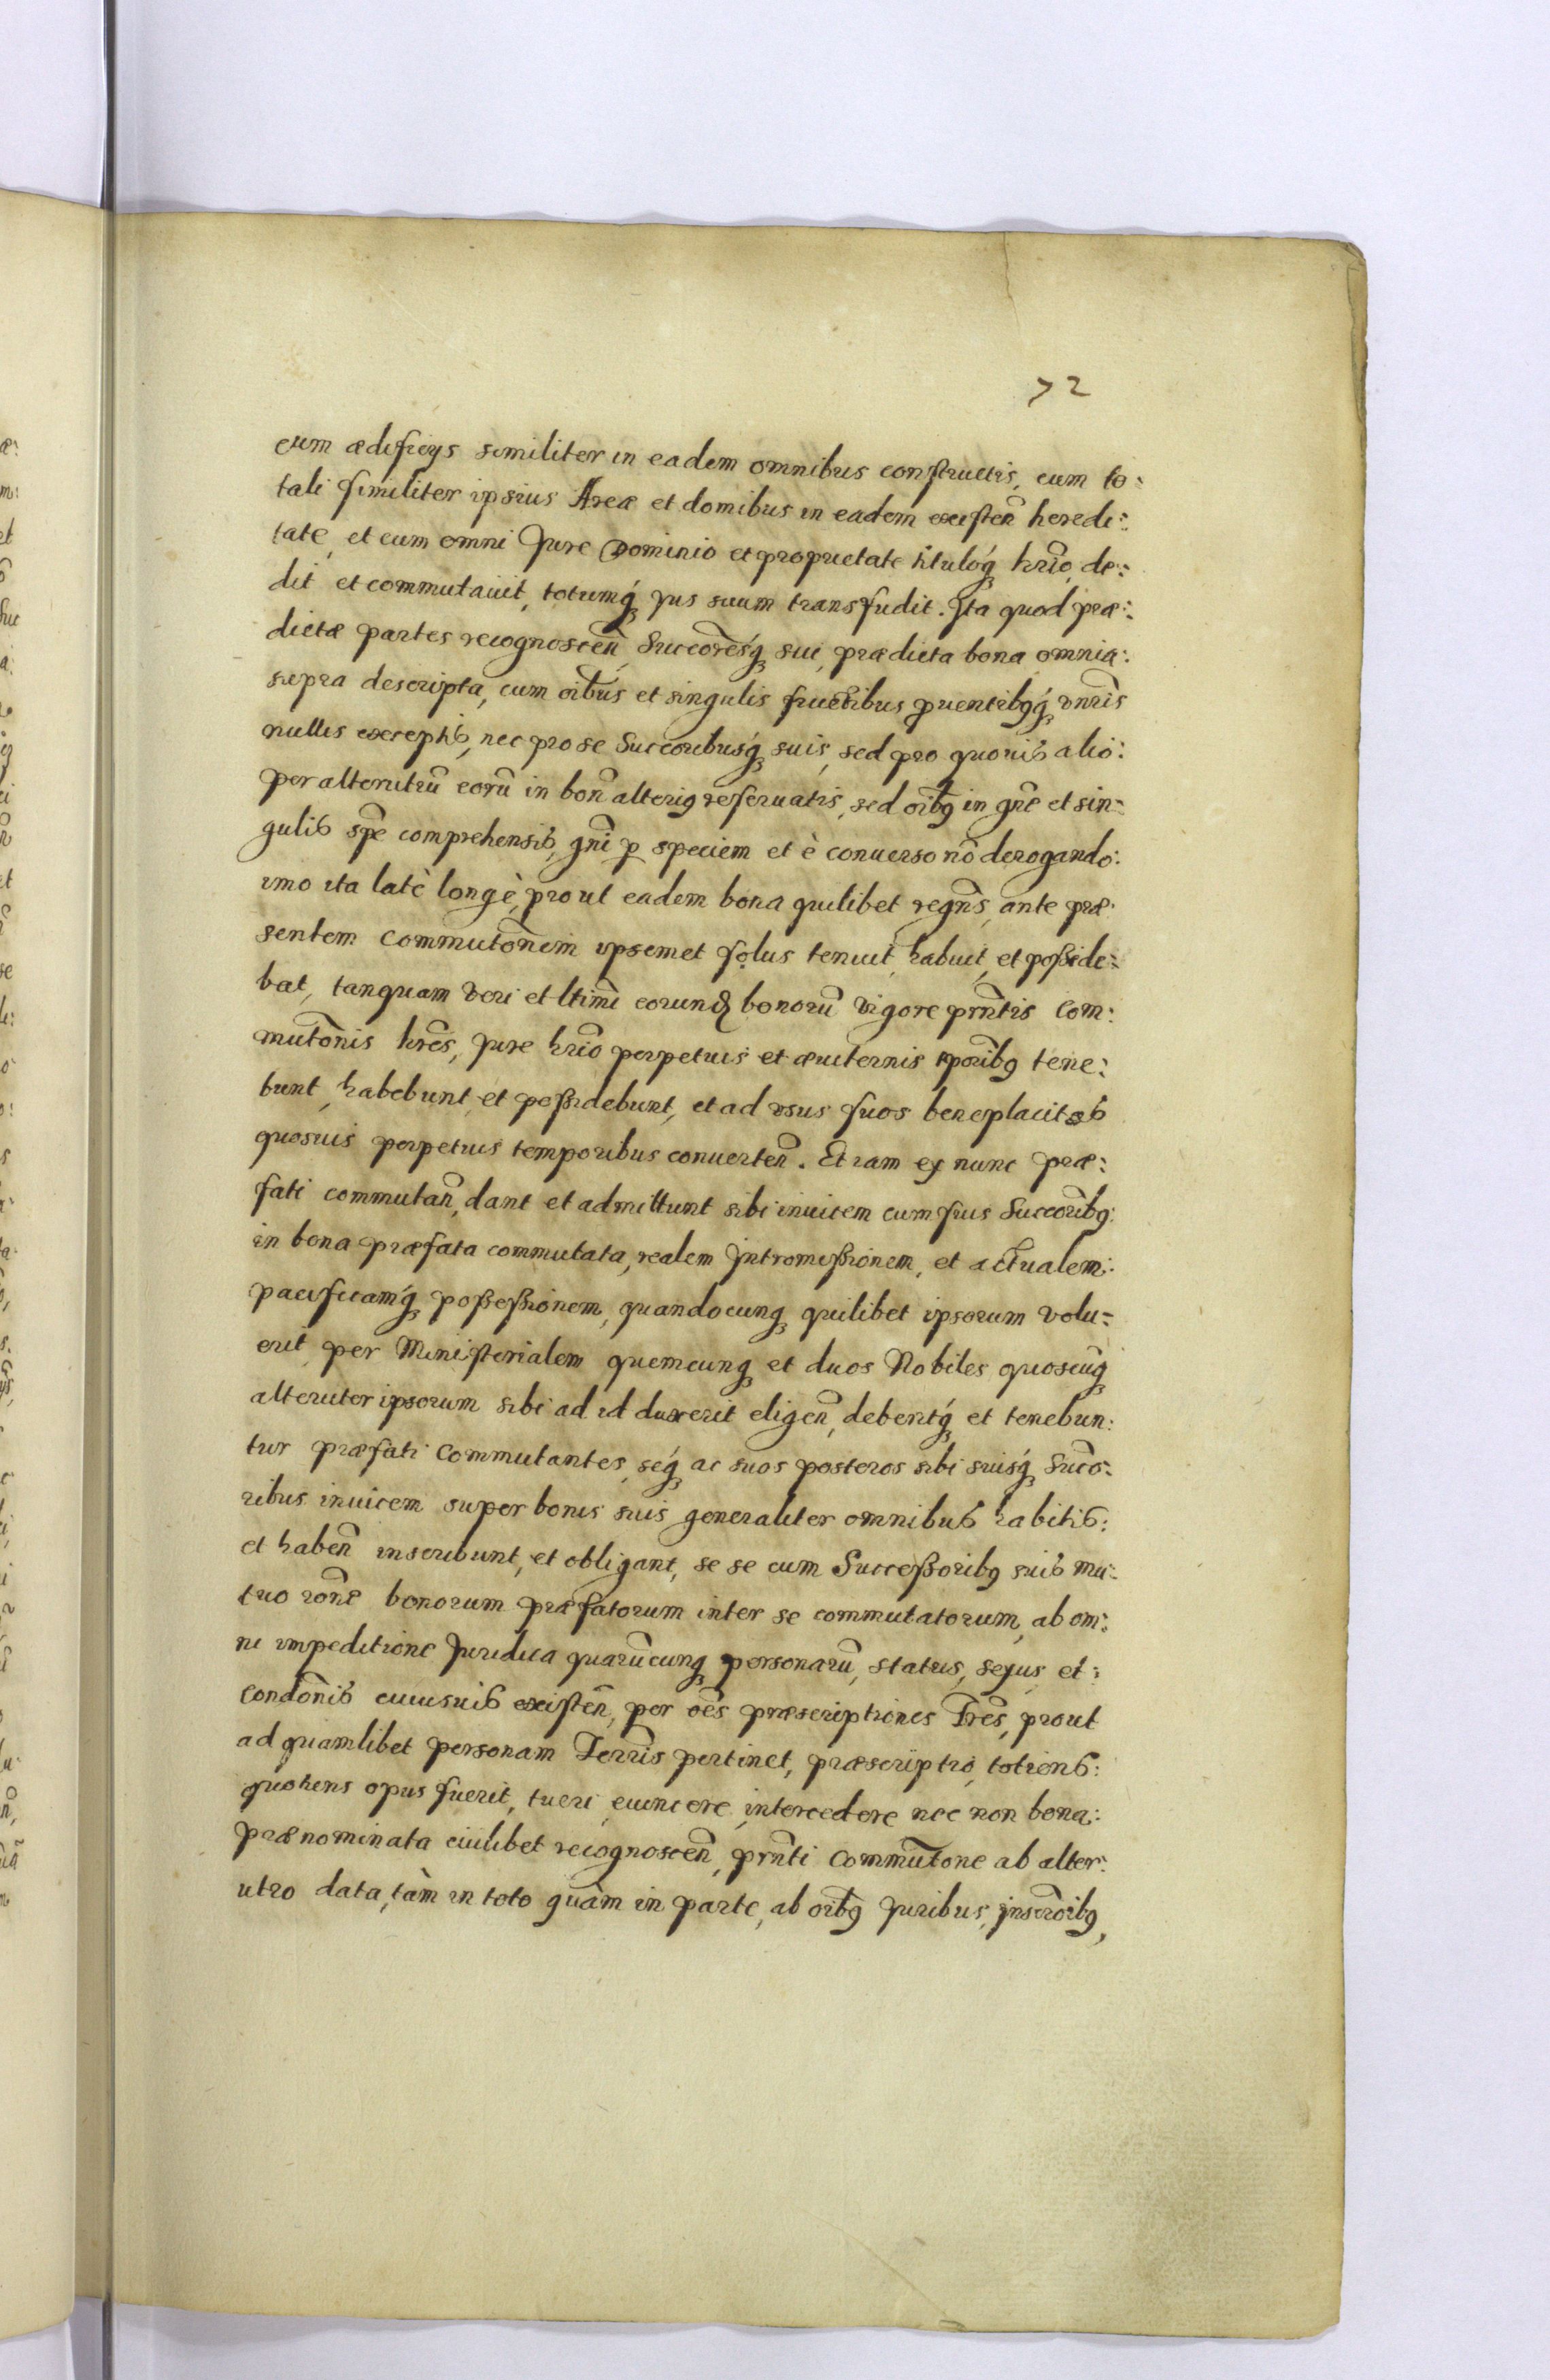 72
cum ædificijs similiter in eadem omnibus constructis, cum to:
tali similiter ipsius Areæ et domibus in eadem existeñ heredi:
tate, et cum omni Jure Dominio et proprietate titulóq hrio, de:
dit et commutauit, totumq́ jus suum transfudit. Ita quod præ:
dictæ partes recognosceñ Succoresq́ sui, prædicta bona omnia:
supra descripta, cum oibus et singulis fructibus prouentibusq́ vnris
nullis exceptis, nec pro se Succoribusq́ suis, sed pro quouis alio:
per alterutrũ eorũ in boñ alterius reseruatis, sed oibus in gñe et sin:
gulis spe comprehensis, gñi per speciem et è conuerso nõ derogando:
imo ita latè longè, prout eadem bona quilibet regñs, ante præ:
sentem Commutõnem ipsemet solus tenuit, habuit, et posside:
bat, tanquam veri et ltimi eorund bonorũ vigore prñtis Com:
mutõnis hres, Jure hrio perpetuis et æuiternis tporibus tene:
bunt, habebunt, et possidebunt, et ad vsus suos beneplacitos
quosuis perpetuis temporibus conuerteñ. Et iam ex nunc præ:
fati commutañ, dant et admittunt sibi inuicem cum suis Succoribus:
in bona præfata commutata, realem Intromissionem, et actualem:
pacificamq́ possessionem, quandocunq quilibet ipsorum volu:
erit, per Ministerialem quemcunq et duos Nobiles quoscũq
alteruter ipsorum sibi ad id duxerit eligeñ, debentq́ et tenebun:
tur præfati Commutantes, seq́ ac suos posteros sibi suisq́ Succo:
ribus inuicem super bonis suis generaliter omnibus habitis:
et habeñ inscribunt, et obligant, se se cum Successoribus suis mu:
tuo rõne bonorum præfatorum inter se commutatorum, ab om:
ni impeditione Juridica quarũcunq personarũ, status, sexus et:
condõnis cuiusuis existeñ, per oẽs præscriptiones Trẽs, prout
ad quamlibet personam Terris pertinet, præscriptio, totiens:
quotiens opus fuerit, tueri, euincere, intercedere nec non bona:
prænominata cuilibet recognosceñ, prñti Commutõne ab alter:
utro data, tàm in toto quàm in parte, ab oibus Juribus, inscroibus,